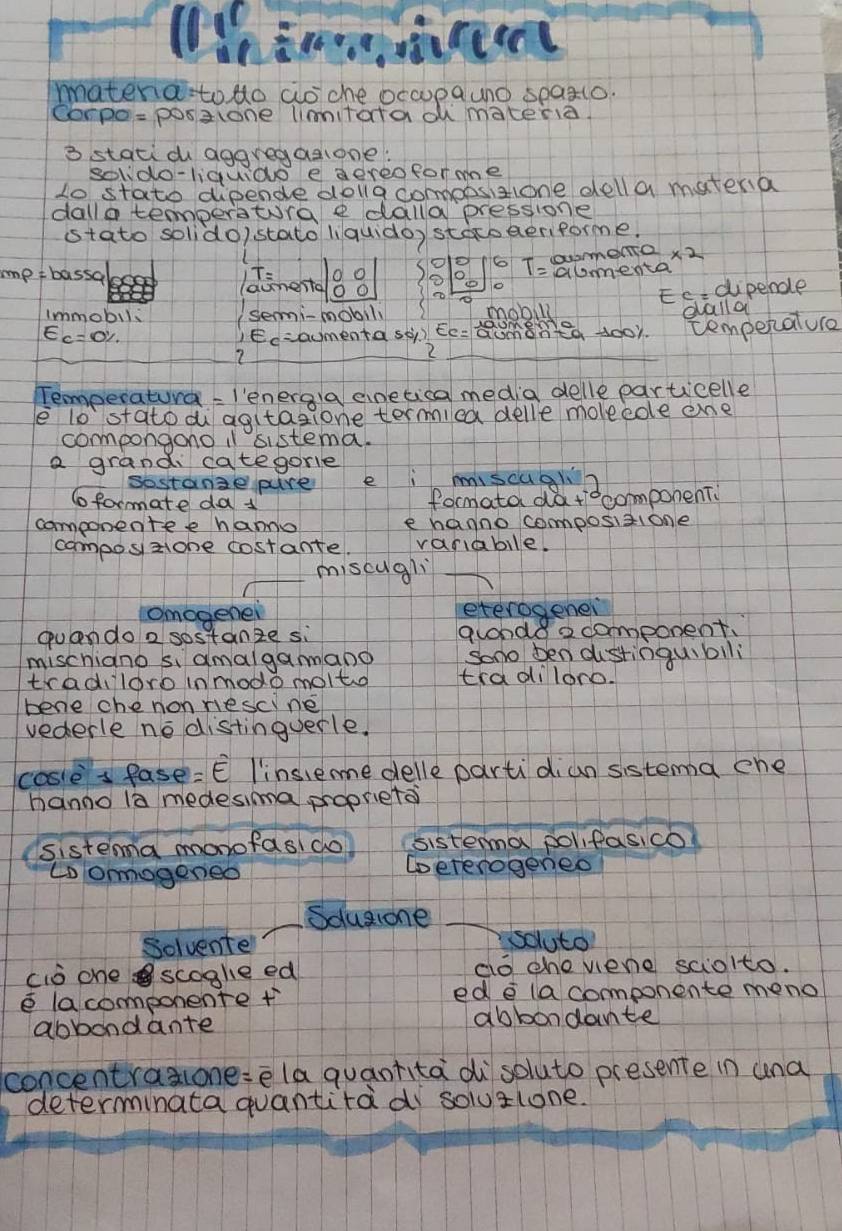 materia = tutto ciò che occupa uno spazio.
Corpo = porzione limitata di materia.
3 stati di aggregazione:
solido-liquido e aereoforme
lo stato dipende dalla composizione della materia
dalla temperatura e dalla pressione
stato solido, stato liquido, stato aeriforme.
mp = bassa T= aumenta T= aumenta x2 aumenta
immobili semi-mobili mobili Ec = dipende dalla temperatura
Ec = 0% Ec = aumenta 50% Ec = aumenta 100%
Temperatura = l'energia cinetica media delle particelle
è lo stato di agitazione termica delle molecole che
compongono il sistema.
2 grandi categorie
sostanze pure e i miscugli
formate da 1 formata da + componenti
componente e hanno e hanno composizione
composizione costante. variabile.
miscugli
omogenei eterogenei
quando 2 sostanze si quando 2 componenti
mischiano si amalgamano sono ben distinguibili
tra di loro in modo molto tra di loro.
bene che non riesci né
vederle né distinguerle.
cos'è 1 fase = È l'insieme delle parti di un sistema che
hanno la medesima proprietà
sistema monofasico sistema polifasico
omogeneo eterogeneo
Soluzione
Solvente soluto
ciò che scoglie ed ciò che viene sciolto.
è la componente + ed è la componente meno
abbondante abbondante
concentrazione = è la quantità di soluto presente in una
determinata quantità di soluzione.